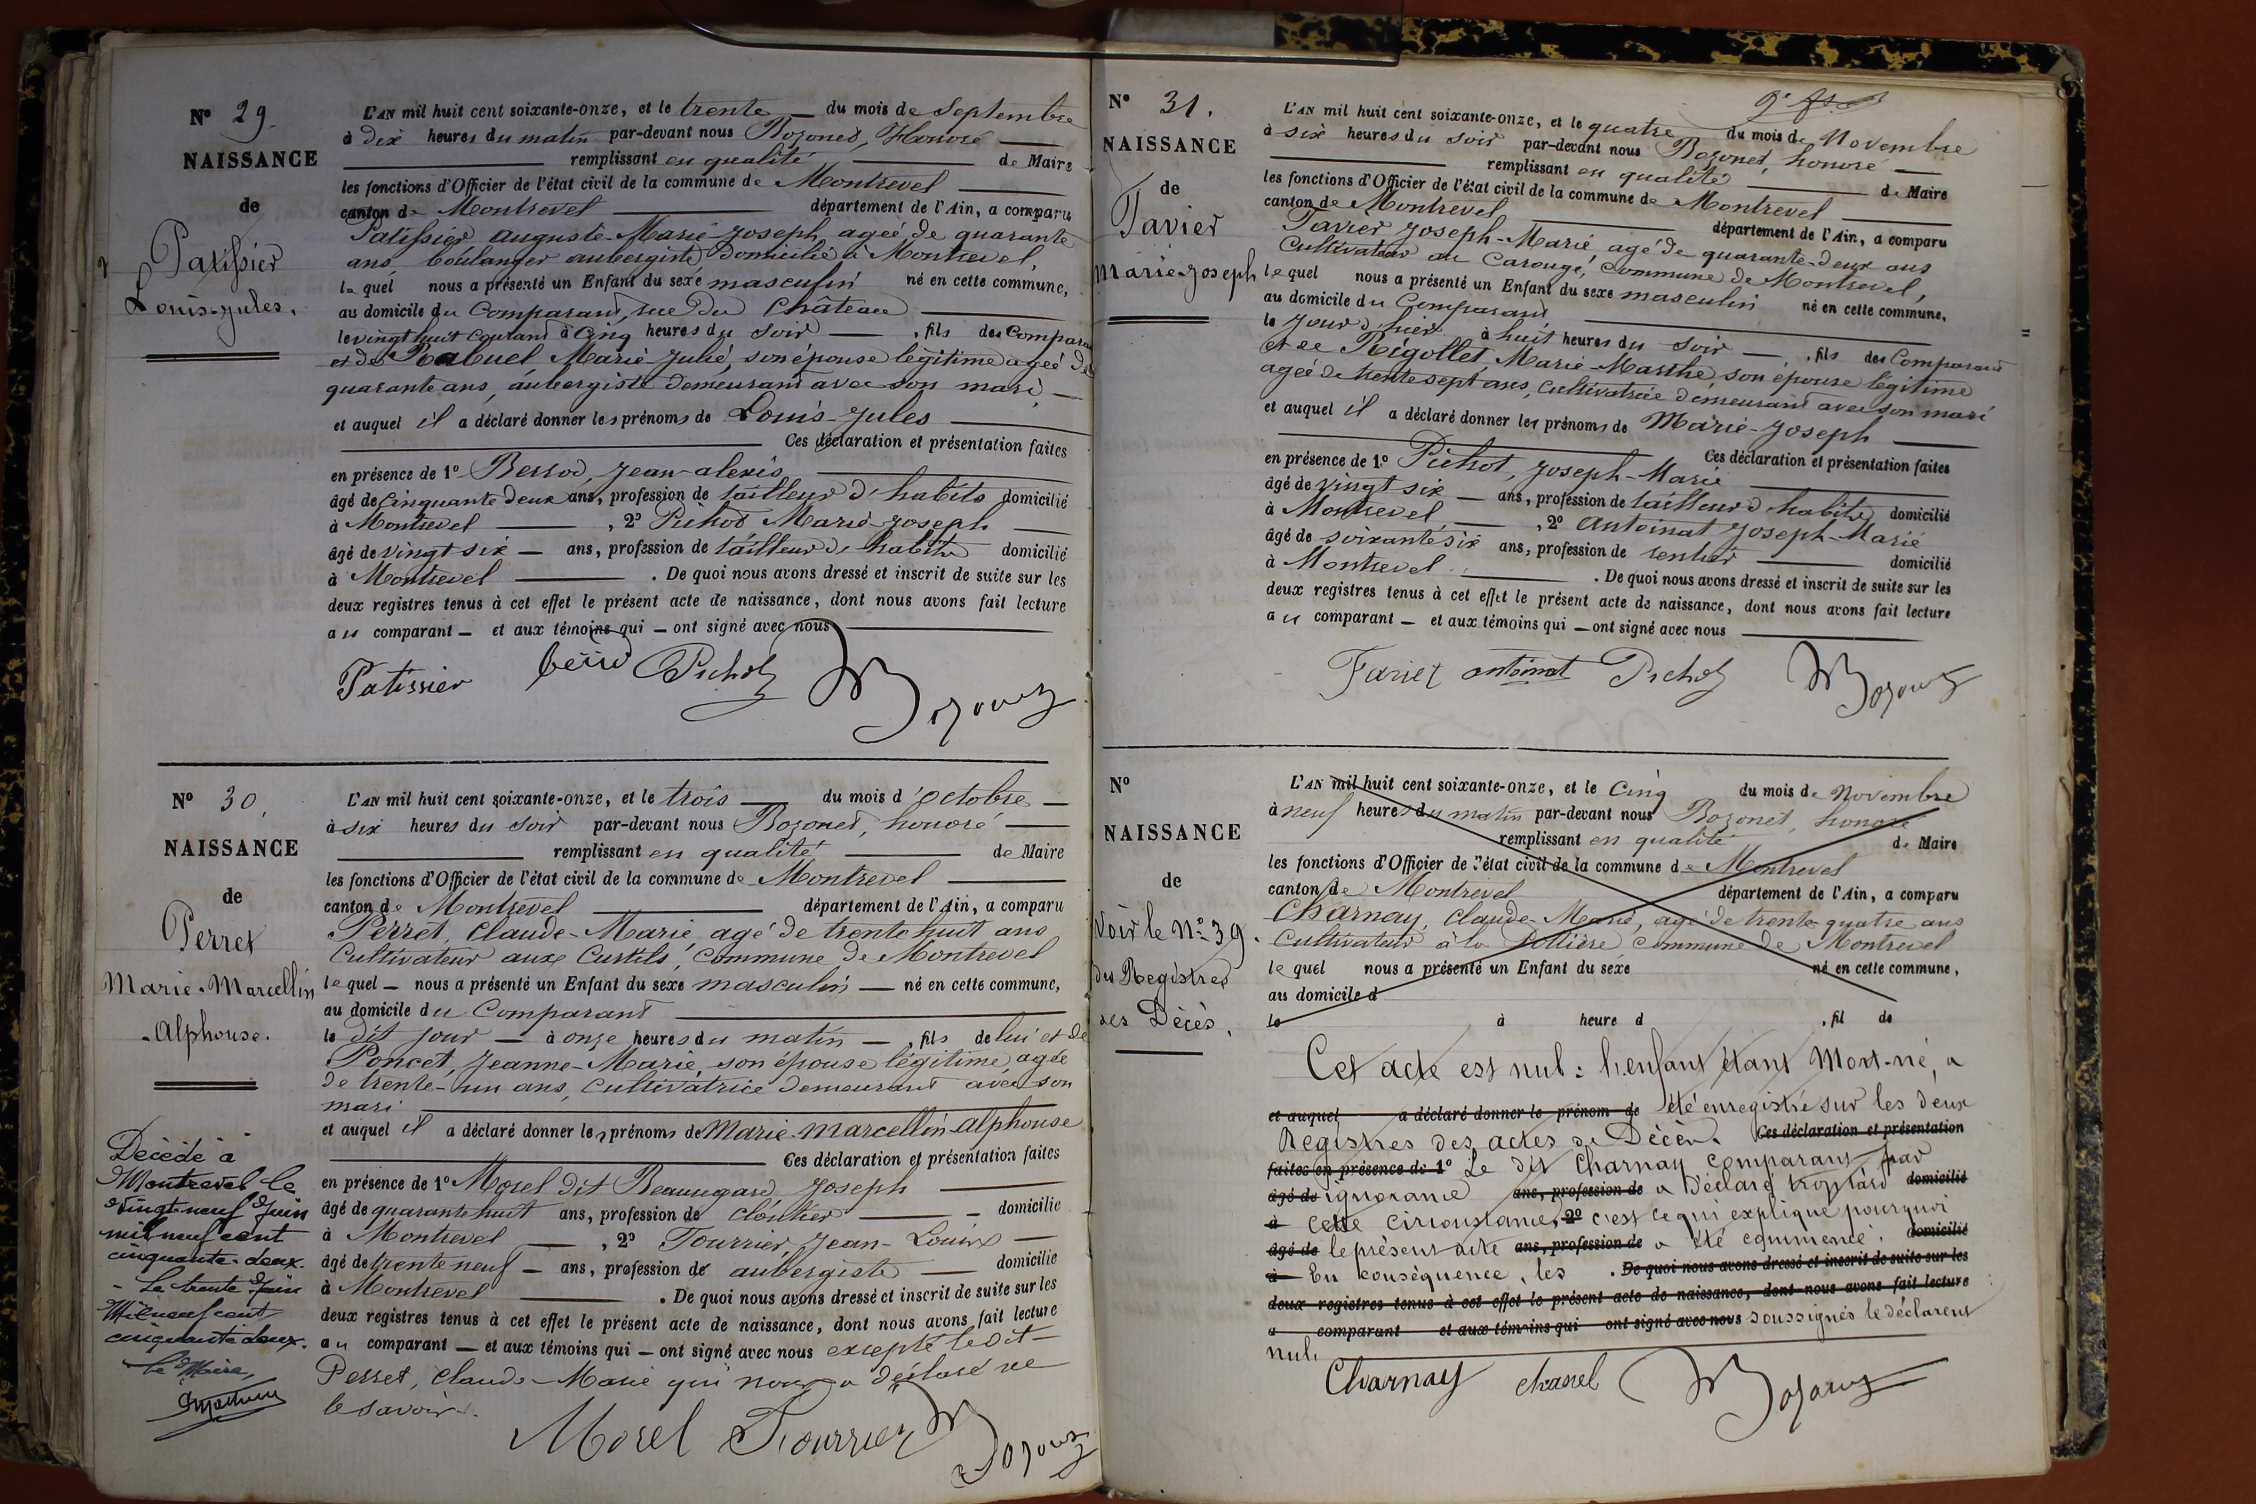 Nº 29.
NAISSANCE
de
Patissier
Louis-jules.
L'AN mil huit cent soixante-onze, et le trente du mois de Septembre
à dix heures du matin par-devant nous Bozonet, Honoré
remplissant en qualité de Maire
les fonctions d'Officier de l'état civil de la commune de Montrevel
canton de Montrevel département de l'Ain, a comparu
Patissier auguste-Marie-joseph, ageé de quarante
ans, boulanger aubergiste domicilié à Montrevel,
lequel nous a présenté un Enfant du sexe masculin né en cette commune,
au domicile du Comparant, rue du Château
le vingt huit courant à Cinq heures du soir , fils des Compara
et de Rabuel, Marie julie, son épouse légitime ageé de
quarante ans, aubergiste demeurant avec son mari,
et auquel il a déclaré donner les prénoms de Louis-jules
Ces déclaration et présentation faites
en présence de 1º Berrod, jean-alexis
âgé de cinquante deux ans, profession de tailleur d'habits domicilié
à Montrevel , 2º Pichod Marie-joseph
âgé de vingt six ans, profession de tailleur d'habits domicilié
à Montrevel . De quoi nous avons dressé et inscrit de suite sur les
deux registres tenus à cet effet le présent acte de naissance, dont nous avons fait lecture
au comparant et aux témoins qui ont signé avec nous
Patissier Pichod Bozonet
Nº 30.
NAISSANCE
de
Perret
Marie-Marcellin
-Alphonse.
Décédé à
Montrevel le
vingt-neuf Juin
mil neuf cent
cinquante-deux.
- Le trente Juin
Mil neuf cent
cinquante deux.
le Maire,
L'AN mil huit cent soixante-onze, et le trois du mois d'octobre
à six heures du soir par-devant nous Bozonet, honoré
remplissant en qualité de Maire
les fonctions d'Officier de l'état civil de la commune de Montrevel
canton de Montrevel département de l'Ain, a comparu
Perret, Claude-Marie, agé de trente huit ans
Cultivateur aux Curtils, Commune de Montrevel
lequel nous a présenté un Enfant du sexe masculin né en cette commune,
au domicile du Comparant
le dit jour à onze heures du matin , fils de lui et de
Poncet, Jeanne-Marie, son épouse légitime, agée
de trente-un ans, Cultivatrice demeurant avec son
mari
et auquel il a déclaré donner les prénoms de Marie-Marcellin-alphonse
Ces déclaration et présentation faites
en présence de 1º Morel dit Beauregard, Joseph
âgé de quarante huit ans, profession de cloutier domicilié
à Montrevel , 2º Tourrier, Jean-Louis
âgé de trente neuf ans, profession de aubergiste domicilié
à Montrevel . De quoi nous avons dressé et inscrit de suite sur les
deux registres tenus à cet effet le présent acte de naissance, dont nous avons fait lecture
au comparant et aux témoins qui ont signé avec nous excepté le dit
Perret, Claude-Marie qui nous a déclaré ne
le savoir.
Morel Tourrier Bozonet
Nº 31.
NAISSANCE
de
Tavier
Marie-joseph
L'AN mil huit cent soixante-onze, et le quatre du mois de Novembre
à six heures du soir par-devant nous Bozonet, honoré
remplissant en qualité de Maire
les fonctions d'Officier de l'état civil de la commune de Montrevel
canton de Montrevel département de l'Ain, a comparu
Tavier Joseph-Marie, agé de quarante-deux ans
Cultivateur au Carouge, Commune de Montrevel,
lequel nous a présenté un Enfant du sexe masculin né en cette commune,
au domicile du Comparant
le jour d'hier à huit heures du soir , fils des Comparant
et de Rigollet, Marie-Marthe, son épouse légitime
agée de trente sept ans, Cultivatrice demeurant avec son mari
et auquel il a déclaré donner les prénoms de Marie-Joseph
Ces déclaration et présentation faites
en présence de 1º Pichot, joseph-Marie
âgé de vingt six ans, profession de tailleur d'habits domicilié
à Montrevel , 2º Antoinat Joseph-Marie
âgé de soixante six ans, profession de rentier domicilié
à Montrevel . De quoi nous avons dressé et inscrit de suite sur les
deux registres tenus à cet effet le présent acte de naissance, dont nous avons fait lecture
au comparant et aux témoins qui ont signé avec nous
antoinat Pichod Bozonet
Nº
NAISSANCE
de
Voir le Nº 39.
du Registre
des Décès.
L'AN mil huit cent soixante-onze, et le Cinq du mois de Novembre
à neuf heures du matin par-devant nous Bozonet, honoré
remplissant en qualité de Maire
les fonctions d'Officier de l'état civil de la commune de Montrevel
canton de Montrevel département de l'Ain, a comparu
Charnay, Claude-Marie, agé de trente quatre ans
Cultivateur à la commune de Montrevel
lequel nous a présenté un Enfant du sexe né en cette commune,
au domicile d
le à heure d , fil de
Cet acte est nul : l'enfant étant Mort-né, a
et auquel a déclaré donner le prénom de été enregistré sur les deux
Registres des actes de Décès. Ces déclaration et présentation
faites en présence de 1º Le dit Charnay comparant par
âgé de ignorance ans, profession de a déclaré trop tard domicilié
à cette circonstance, 2º c'est ce qui explique pourquoi
âgé de le présent acte ans, profession de a été commencé. domicilié
à En conséquence, les . De quoi nous avons dressé et inscrit de suite sur les
deux registres tenus à cet effet le présent acte de naissance, dont nous avons fait lecture
a comparant et aux témoins qui ont signé avec nous soussignés le déclarent
nul.
Charnay Bozonet